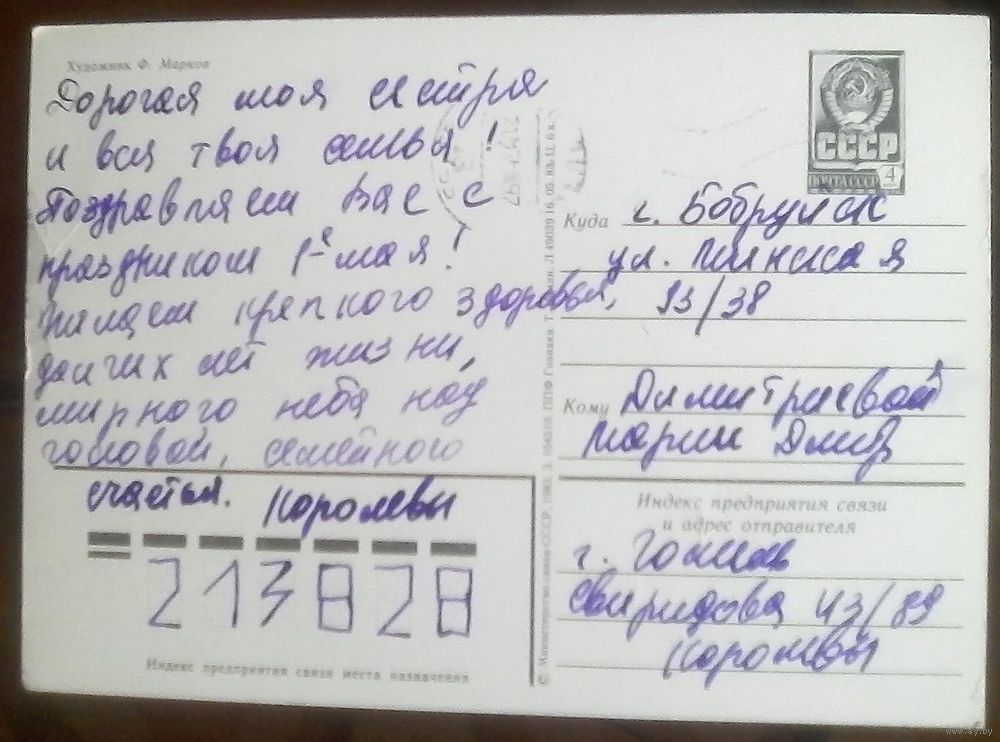 Художник Ф. Марков
Дорогая моя сестра
и вся твоя семья!
Поздравляем Вас с
праздником 1-я мая!
Желаем крепкого здоровья,
долгих лет жизни,
мирного неба над
головой, семейного
счастья. Королевы
213828
Индекс предприятия связи места назначения
© Министерство связи СССР, 1983.
СССР
4
Куда г. Бобруйск
ул. Минская
93/38
Кому Димитриевой
Марии Дмит
Индекс предприятия связи
и адрес отправителя
г. Гомель
Свиридова 43/89
Королевы
www.ay.by